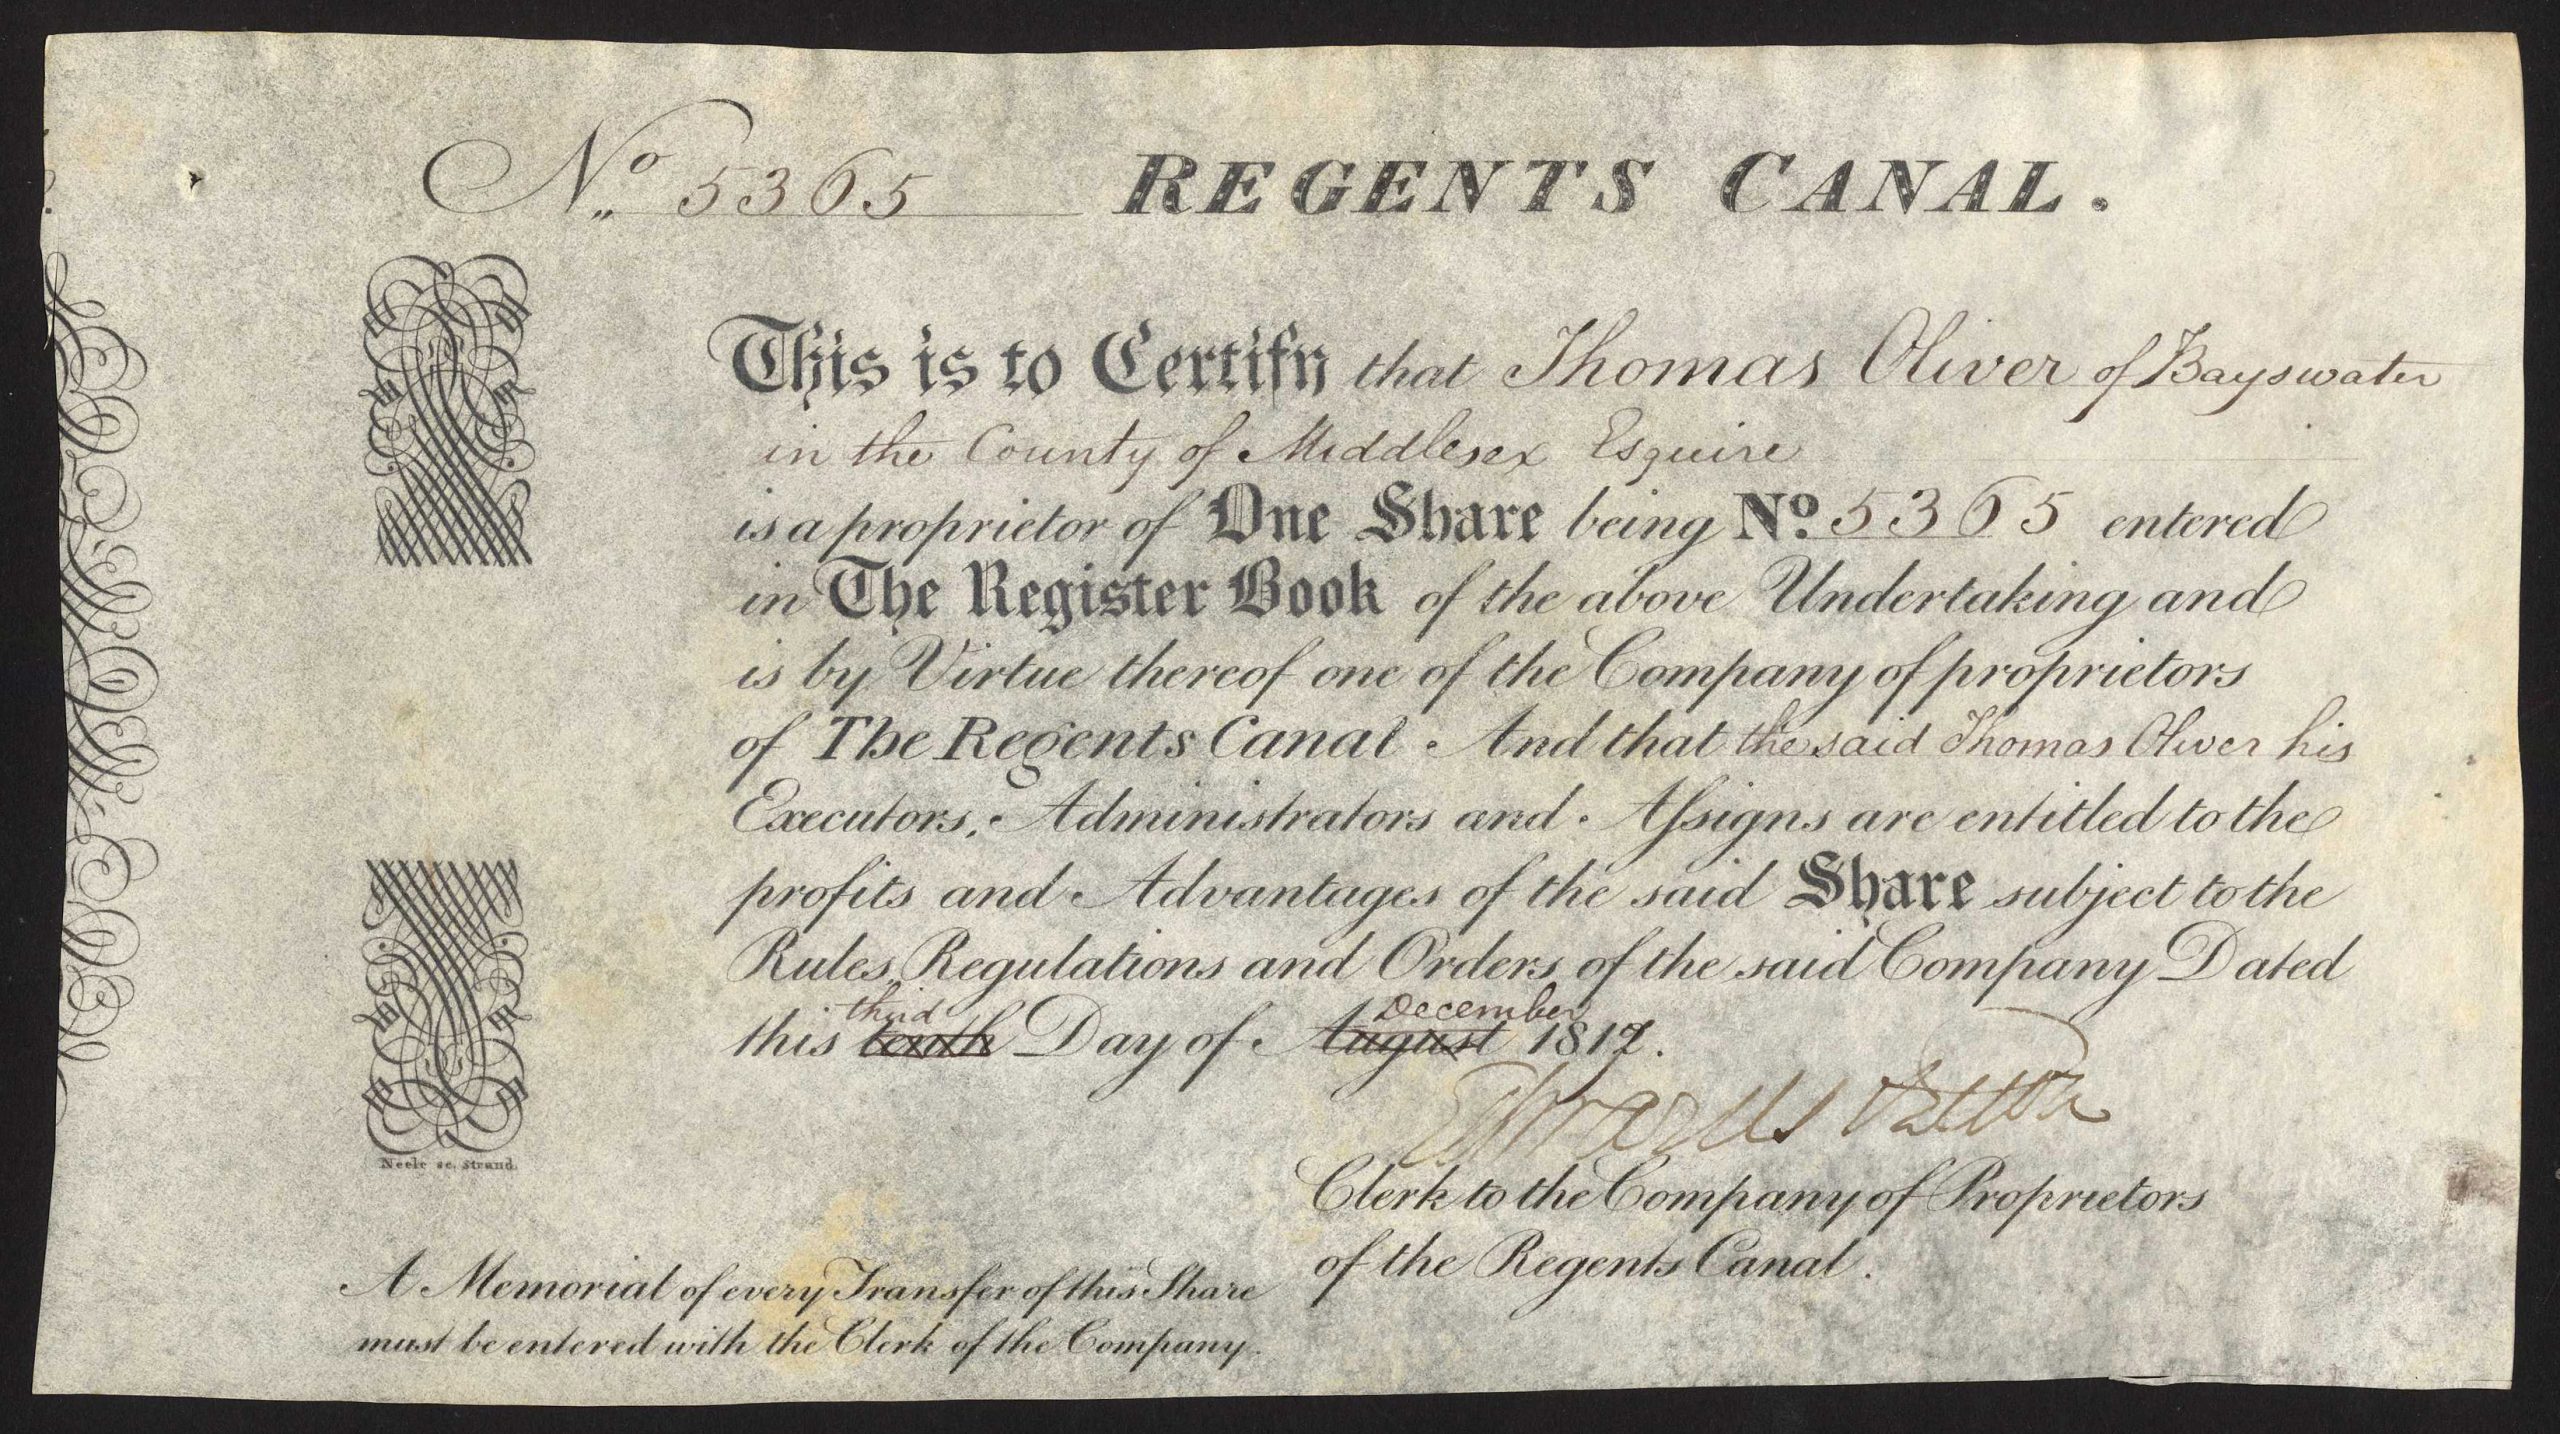 No. 5365 REGENTS CANAL.
This is to Certify that Thomas Oliver of Bayswater
in the County of Middlesex Esquire
is a proprietor of One Share being No. 5365 entered
in The Register Book of the above Undertaking and
is by Virtue thereof one of the Company of proprietors
of The Regents Canal. And that the said Thomas Oliver his
Executors, Administrators and Assigns are entitled to the
profits and Advantages of the said Share subject to the
Rules, Regulations and Orders of the said Company Dated
third December
this tenth Day of August 1817.
Neele sc. Strand.
Clerk to the Company of Proprietors
of the Regents Canal.
A Memorial of every Transfer of this Share
must be entered with the Clerk of the Company.